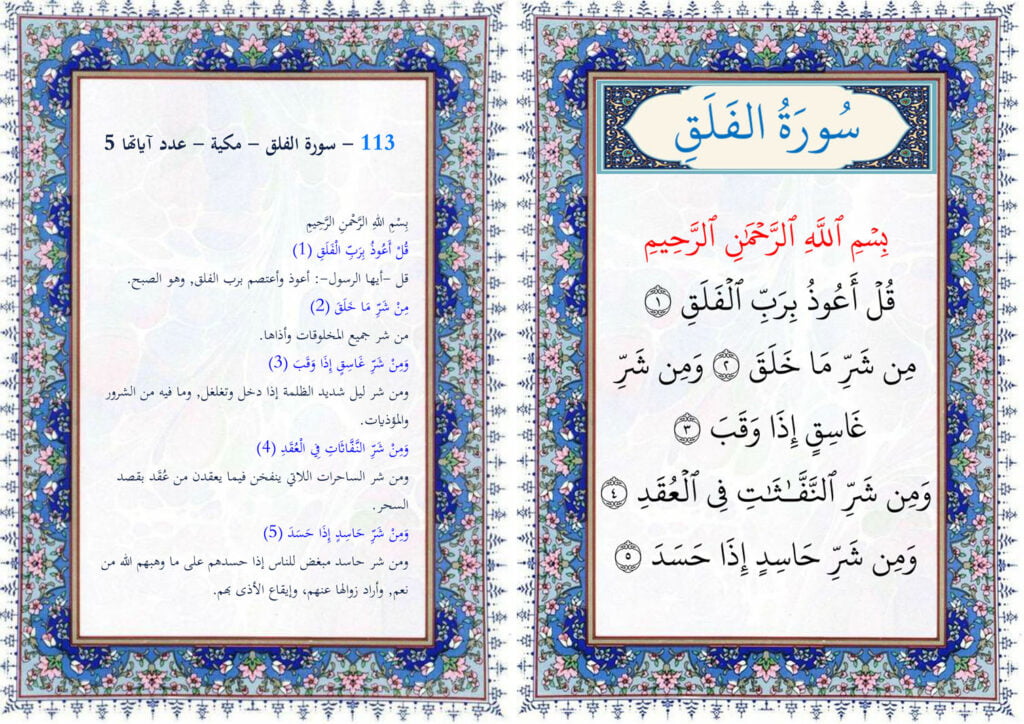 سُورَةُ الفَلَقِ
بِسْمِ ٱللَّهِ ٱلرَّحْمَٰنِ ٱلرَّحِيمِ
قُلْ أَعُوذُ بِرَبِّ ٱلْفَلَقِ ١
مِن شَرِّ مَا خَلَقَ ٢ وَمِن شَرِّ
غَاسِقٍ إِذَا وَقَبَ ٣
وَمِن شَرِّ ٱلنَّفَّـٰثَـٰتِ فِى ٱلْعُقَدِ ٤
وَمِن شَرِّ حَاسِدٍ إِذَا حَسَدَ ٥
113 – سورة الفلق – مكية – عدد آياتها 5
بِسْمِ اللهِ الرَّحْمنِ الرَّحِيمِ
قُلْ أَعُوذُ بِرَبِّ الْفَلَقِ (1)
قل -أيها الرسول-: أعوذ وأعتصم برب الفلق, وهو الصبح.
مِنْ شَرِّ مَا خَلَقَ (2)
من شر جميع المخلوقات وأذاها.
وَمِنْ شَرِّ غَاسِقٍ إِذَا وَقَبَ (3)
ومن شر ليل شديد الظلمة إذا دخل وتغلغل, وما فيه من الشرور
والمؤذيات.
وَمِنْ شَرِّ النَّفَّاثَاتِ فِي الْعُقَدِ (4)
ومن شر الساحرات اللاتي ينفخن فيما يعقدن من عُقَد بقصد
السحر.
وَمِنْ شَرِّ حَاسِدٍ إِذَا حَسَدَ (5)
ومن شر حاسد مبغض للناس إذا حسدهم على ما وهبهم الله من
نعم, وأراد زوالها عنهم، وإيقاع الأذى بهم.